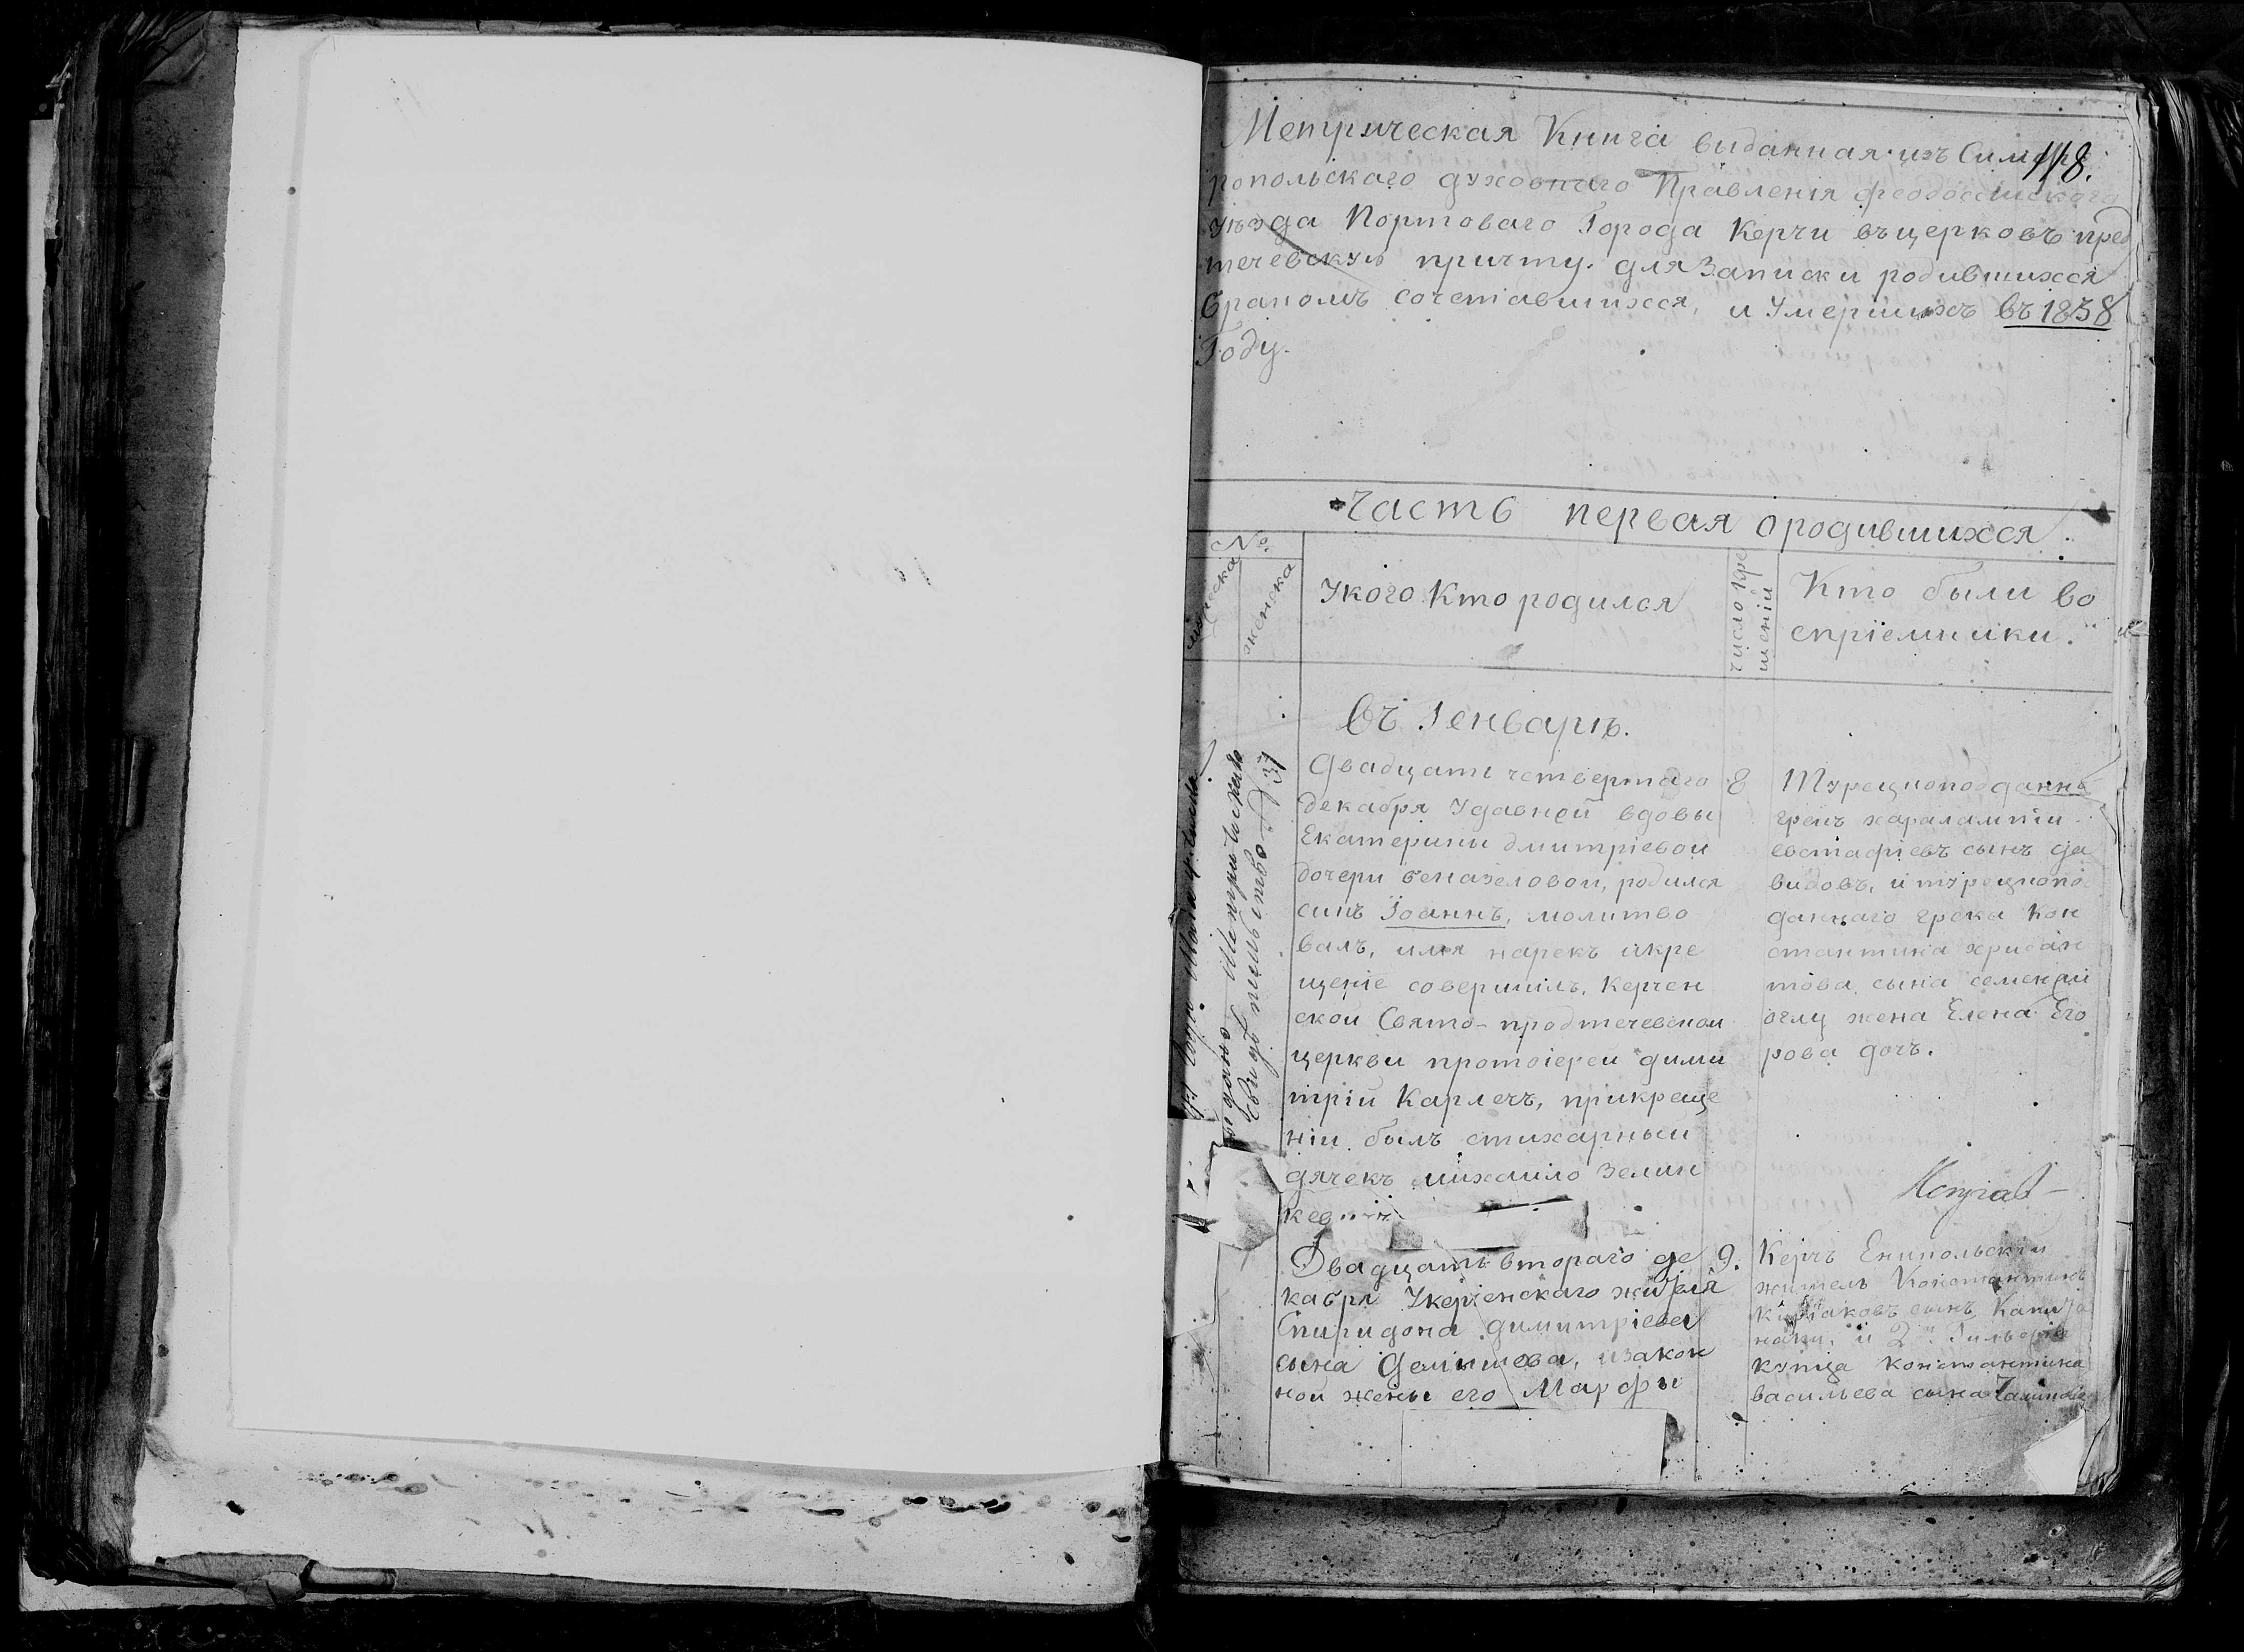 118.
Метрическая Книга виданная изъ Симфе
ропольскаго духовнаго Правленія феодосійскаго
уъзда Портоваго Города Керчи въ церковъ пред
течевскую причту для Записки родившихся
бракомъ сочетавшихся, и Умершихъ въ 1838
Году.
Часть первая о родившихся
№
мужеска
женска
У кого Кто родился
число кре
щеній
Кто были во
спріемники.
въ Генваръ.
Двадцать четвертаго
декабря Удавней вдовы
Екатерины дмитріевой
дочери родился
синъ Іоаннъ, молитво
валъ, имя нарекъ и кре
щеніе совершилъ, Керчен
ской Свято-продтечевской
церкви протоіерей дими
трій Карлечъ, прикреще
ніи былъ стихарный
дячекъ михаило Зелин
кевичъ
8
Турецкоподданн
грекъ харалампій
евстафіевъ сынъ да
видовъ, и турецкопо
даннаго грека Кон
стантина хрисан
това сына
оглу жена Елена Его
рова дочъ.
Двадцать втораго де
кабря Укерченскаго жителя
Спиридона димитріева
сына и закон
ной жены его Марфы
9.
Керчъ Еникольскій
житель Константинъ
киріаковъ сынъ
и 2й Гильдіи
купца константина
василъева сына